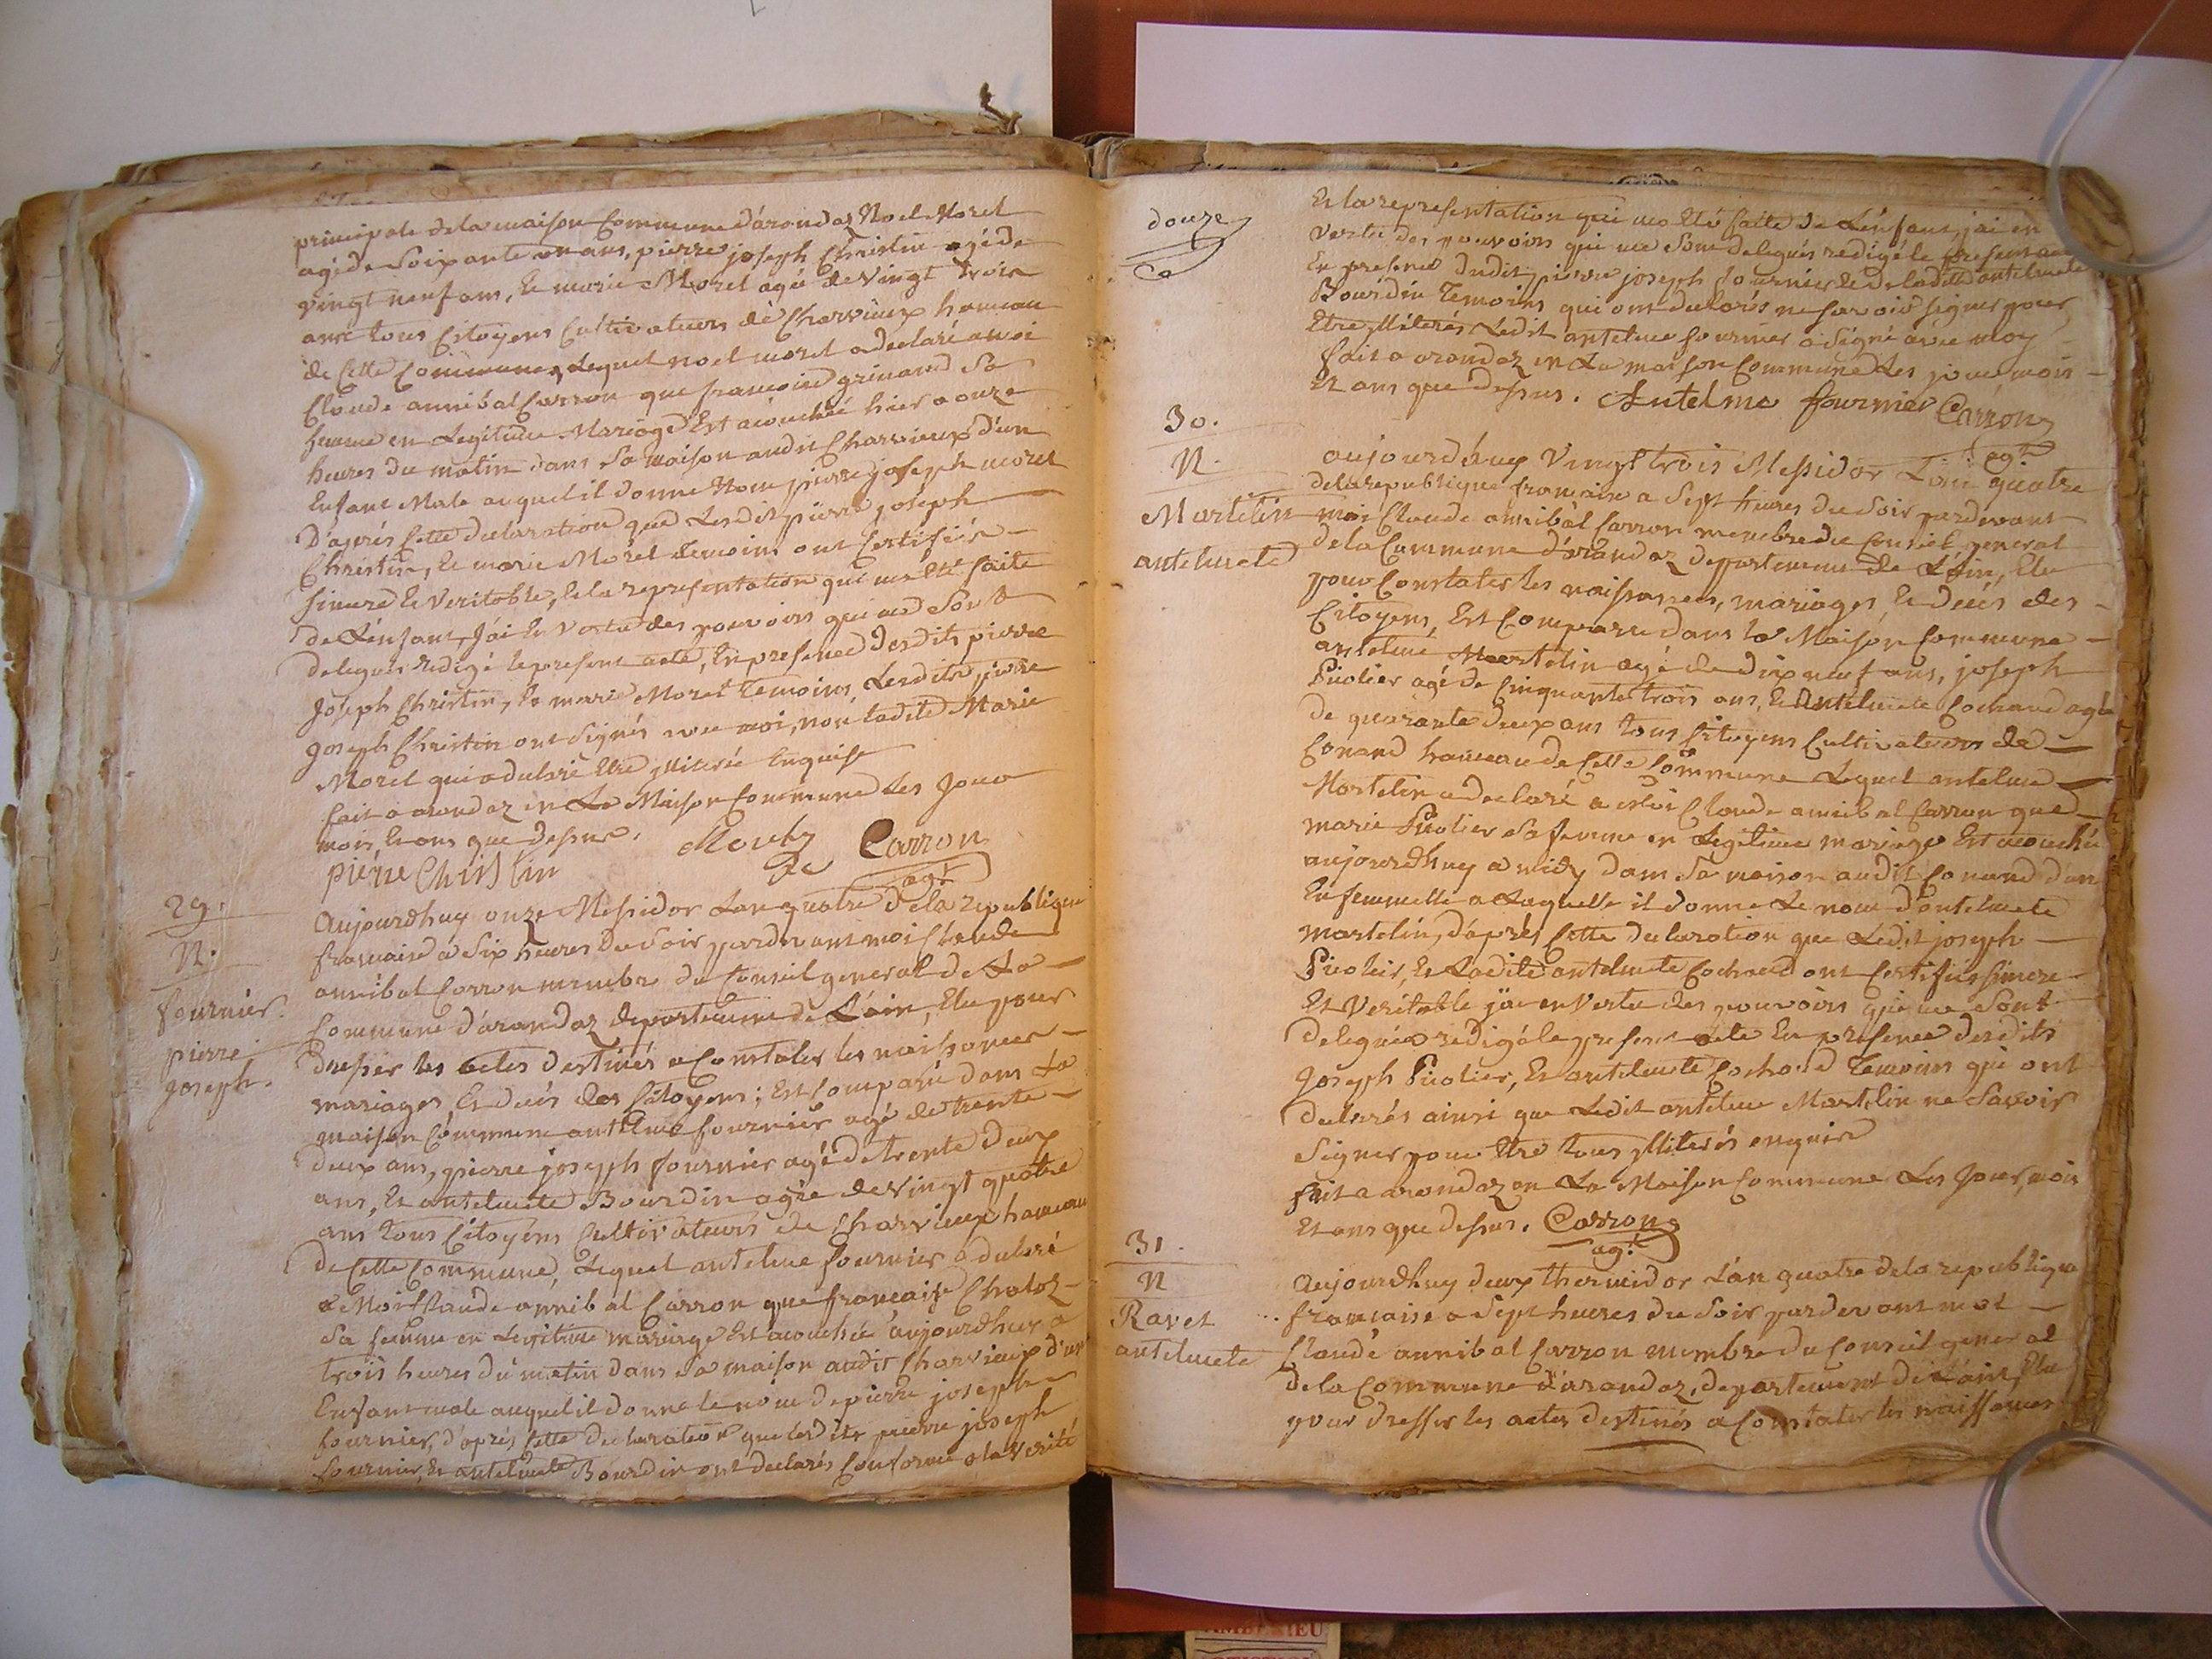 principale de la maison Commune d'arandaz Noel Morel
agé de Soixante un ans, pierre joseph Christin agé de
vingt neuf ans, Et marie Morel agée de Vingt trois
ans tous Citoyens Cultivateurs de Charvieux hameau
de Cette Commune, Lequel noel morel a declaré a moi
Claude annibal Carron que francoise grinand Sa
femme en Legitime Mariage Est acouchée hier a onze
heures du matin dans Sa maison audit Charvieux d'un
Enfant Male auquel il donne Nom pierre joseph morel
D'aprés Cette declaration que Lesdit pierre joseph
Christin, Et marie Morel temoins ont Certifiés
Sincere Et Veritable, Et la representation qui m'a Eté faite
de L'enfant, J'ai En Vertu des pouvoirs qui me Sont
delegués redigé le present acte, En presence Desdits pierre
Joseph Christin, Et marie Morel Temoins Lesdits pierre
Joseph Christin ont Signés avec moi, non ladite Marie
Morel qui a declaré Etre illiterée Enquise
fait a arandaz en La Maison Commune Les Jour
mois, Et ans que dessus.
Carron
agt
pierre Christin
29.
N.
fournier.
pierre
Joseph.
Aujourdhuy onze Messidor Lan quatre de la republique
francaise a Six heures Du Soir pardevant moi Claude
annibal Carron membre du Conseil general de La
Commune d'arandaz departement de L'ain, Elu pour
Dresser les actes destinés a Constater les naissances
mariages, Et decés des Citoyens; Est Comparu dans La
maison Commune antelme fournier agé de trente
deux ans, pierre joseph fournier agé de trente deux
ans, Et antelmete Bourdin agée de Vingt quatre
ans tous Citoyens Cultivateurs de Charvieux hameau
de Cette Commune, Lequel antelme fournier a declaré
a Moi Claude annibal Carron que francaise Chaloz
Sa femme en Legitime mariage Est acouchée aujourdhuy a
trois heures du matin dans Sa maison audit Charvieux d'un
Enfant male auquel il donne le nom de pierre joseph
fournier, d'aprés Cette declaration que Lesdits pierre joseph
fournier, Et antelmete Bourdin ont declarés Conforme a la Verité
douze
Et la representation qui m'a Eté faite de L'enfant, j'ai en
Vertu des pouvoirs qui me Sont delegués redigé le present acte
En presence Dudit pierre joseph fournier Et de ladite antelmete
Bourdin Temoins qui ont declarés ne savoir signer pour
Etre illiterés Ledit antelme fournier a Signé avec moy
fait a arandaz en La maison Commune Les jour mois
Et ans que dessus. Antelme fournier Carron
agt
30.
N.
Martelin
antelmete
aujourdhuy Vingt trois Messidor L'an quatre
de la republique francaise a Sept heures du Soir pardevant
moi Claude annibal Carron membre du Conseil general
de la Commune d'arandaz departement de L'ain, Elu
pour Constater les naissances, mariages, Et Decés des
Citoyens, Est Comparu dans la Maison Commune
antelme Martelin agé de dix neuf ans, joseph
Picolier agé de Cinquante trois ans, Et Antelmete Cochand agée
de quarante deux ans tous Citoyens Cultivateurs de
Conand hameau de Cette Commune Lequel antelme
Martelin a declaré a moi Claude annibal Carron que
marie Picolier Sa femme en Legitime mariage Est acouchée
aujourdhuy a midy dans Sa maison audit Conand d'un
Enf femmelle a Laquelle il donne Le nom d'antelmete
martelin, d'aprés Cette declaration que Ledit joseph
Picolier, Et Ladite antelmete Cochand ont Certifiés Sincere
Et Veritable j'ai en Vertu des pouvoirs qui me Sont
delegués redigé le present acte En presence desdits
Joseph Picolier, Et antelmete Cochand Temoins qui ont
declarés ainsi que Ledit antelme Martelin ne Savoir
Signer pour Etre tous illiterés enquis
fait a arandaz en La Maison Commune Les Jour, mois
Et ans que dessus. Carron
agt
31.
N
Ravet
antelmete
Aujourdhuy deux thermidor L'an quatre de la republique
francaise a Sept heures du Soir pardevant moi
Claude annibal Carron membre du Conseil general
de la Commune d'arandaz, departement de L'ain, Elu
pour dresser les actes destinés a Constater les naissances